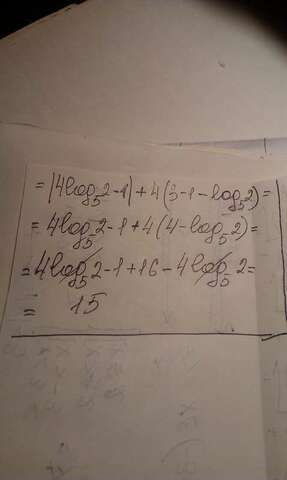 = |4log₅2-1| + 4(3-1-log₅2) =
= 4log₅2-1+4(4-log₅2) =
= 4log₅2-1+16-4log₅2 =
= 15